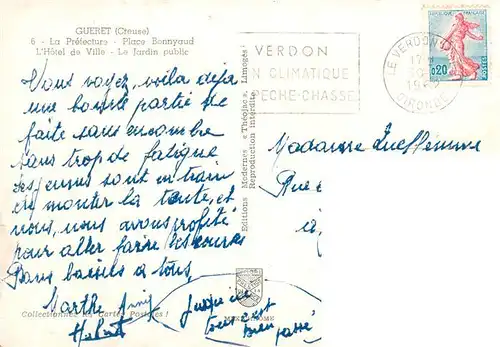 GUERET (Creuse)
6 - La Préfecture - Place Bonnyaud
L'Hôtel de Ville - Le Jardin public
Vous voyez, voilà déjà
une bonne partie de
faite sans encombre
sans trop de fatigue
Les jeunes sont en train
de monter la tente, et
nous, nous avons profité
pour aller faire les courses
Bons baisers à tous,
Marthe
Hubert
Jusqu'ici
tout s'est
bien passé
Collectionnez les Cartes Postales !
Editions Modernes « Théojac », Limoges
Reproduction interdite
VERDON
N CLIMATIQUE
PECHE-CHASSE
LE VERDON
GIRONDE
REPUBLIQUE FRANÇAISE
0,20
POSTES
Madame
Rue